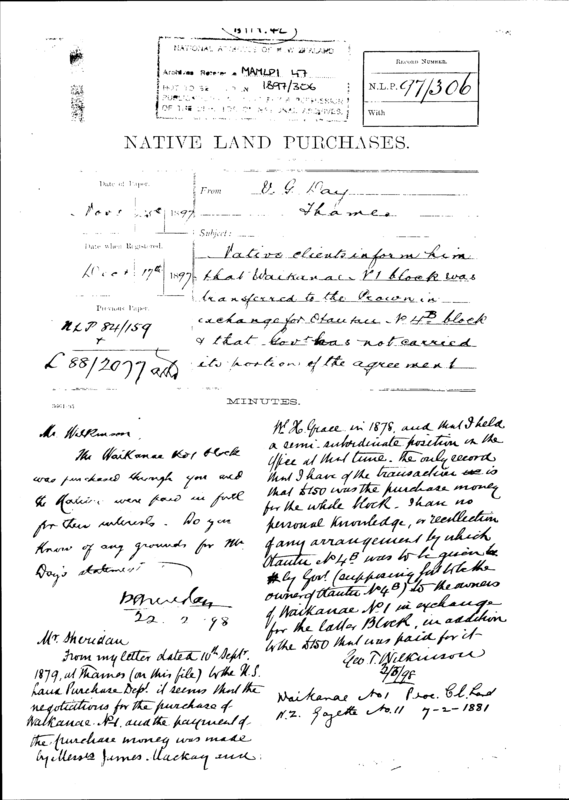 NATIONAL ARCHIVES OF NEW ZEALAND
Archives Reference MAMLP1 47
1897/306
OF THE NATIONAL ARCHIVES.
RECORD NUMBER.
N.L.P. 97/306
With
NATIVE LAND PURCHASES.
Date of Paper.
1897
Date when Registered.
Dec 17th 1897
Previous Paper.
NLP 84/159
+
£ 88/2077
From V. G. Day
Thames
Subject:
Native clients inform him
that Waikanae No 1 block was
transferred to the Crown in
exchange for Otautu No 4B block
& that Govt has not carried
its portion of the agreement
MINUTES.
Mr Wilkinson
The Waikanae No 1 block
was purchased through you and
the Natives were paid in full
for their interests. Do you
know of any grounds for Mr
Day's statement
P Sheridan
22 98
Mr. Sheridan
From my letter dated 10th Septr.
1879, at Thames (on this file) to the U.S.
Land Purchase Dept. it seems that the
negotiations for the purchase of
Waikanae No 1, and the payment of
the purchase money was made
by Messrs James Mackay and
W. H. Grace in 1878, and that I held
a semi-subordinate position in the
office at that time. The only record
that I have of the transaction is
that £150 was the purchase money
for the whole block. I have no
personal knowledge, or recollection
of any arrangement by which
Otautu No 4B was to be given
by Govt (supposing Govt to be the
owner of Otautu No 4B) to the owners
of Waikanae No 1 in exchange
for the latter Block, in addition
to the £150 that was paid for it
Geo T. Wilkinson
98
Waikanae No 1 Proc. C. Land
N.Z. Gazette No. 11 7-2-1881